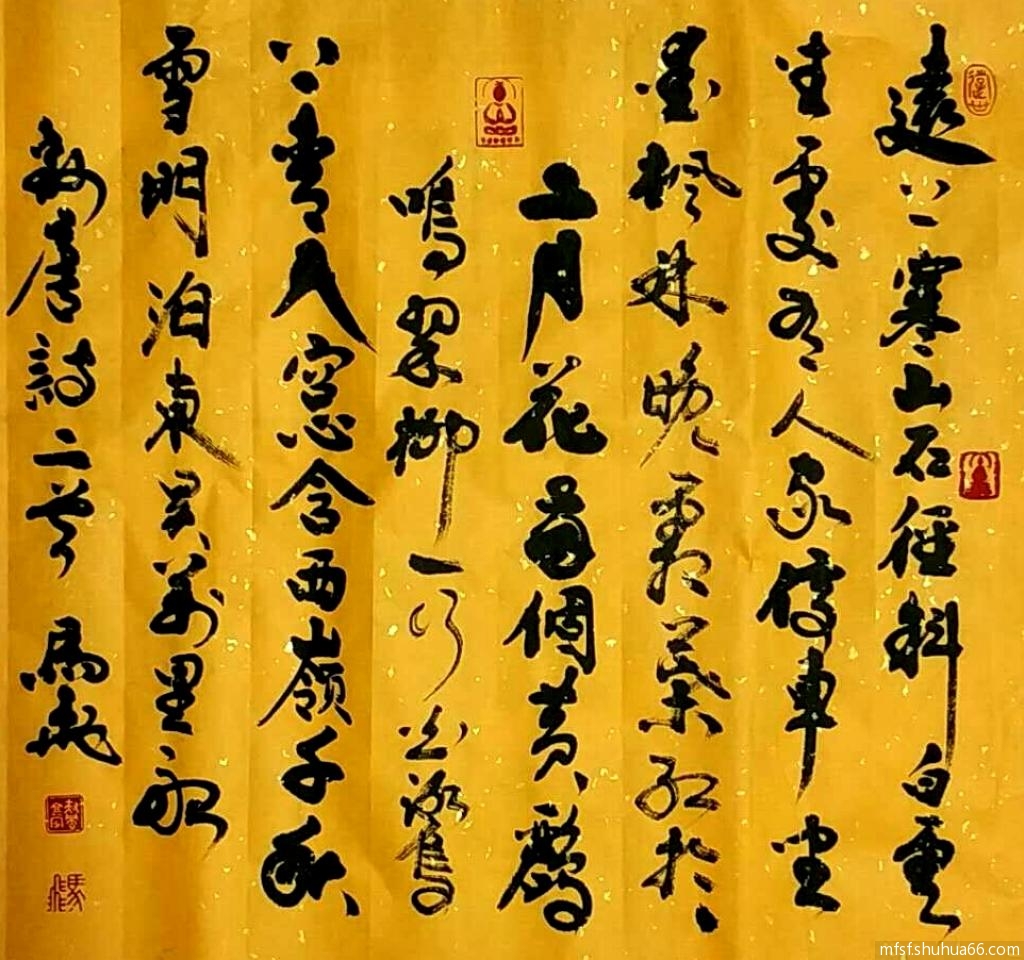 遠上寒山石徑斜白雲
生處有人家停車坐
愛楓林晚霜葉紅於
二月花兩個黃鸝
鳴翠柳一行白鷺
上青天窗含西嶺千秋
雪門泊東吳萬里船
唐詩二首
mfsf.shuhua66.com